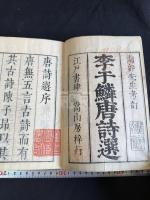 南郭先生考訂
李于鱗唐詩選
江戸書肆 嵩山房梓行
唐詩選序
唐無五言古詩而有
其古詩陳子昂以其